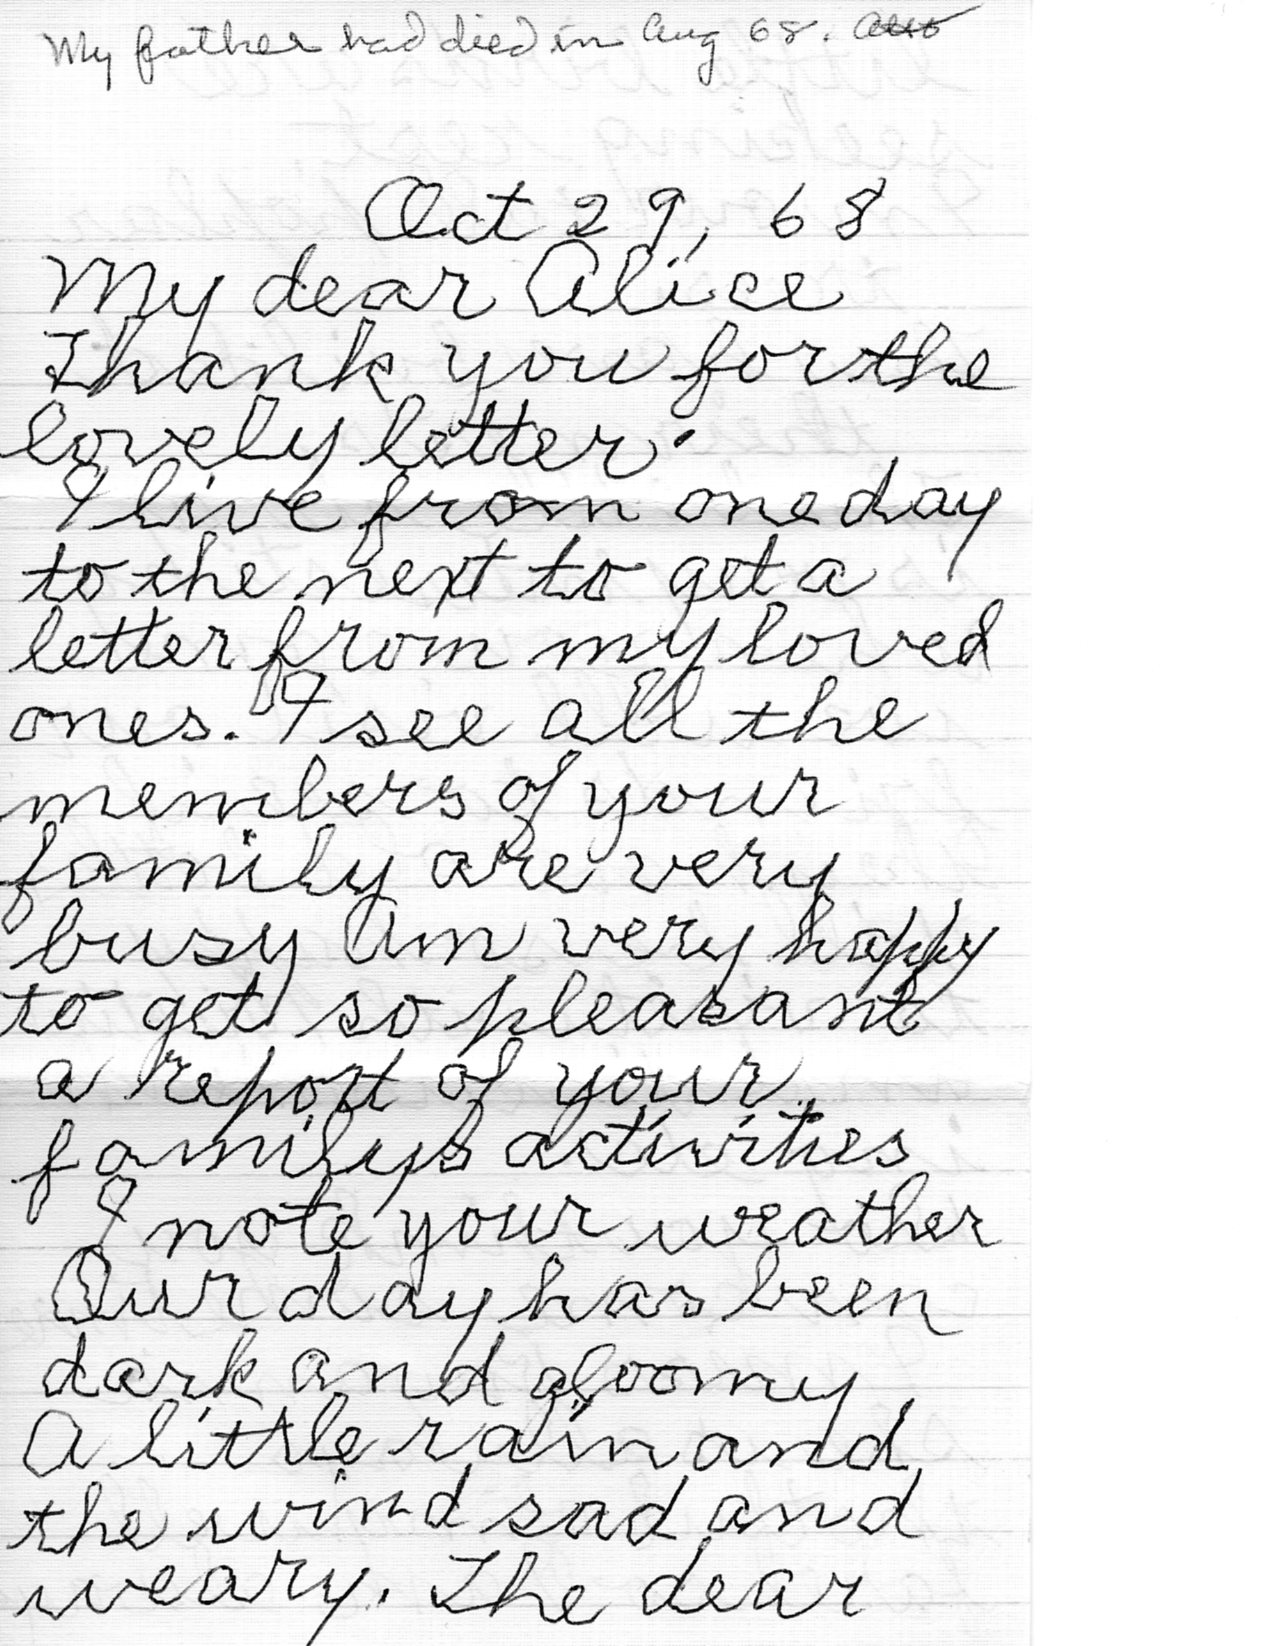 My father had died in Aug 68.
Oct 29, 68
My dear Alice
Thank you for the
lovely letter.
I live from one day
to the next to get a
letter from my loved
ones. I see all the
members of your
family are very
busy Am very happy
to get so pleasant
a report of your
family's activities
I note your weather
Our day has been
dark and gloomy
A little rain and
the wind sad and
weary. The dear